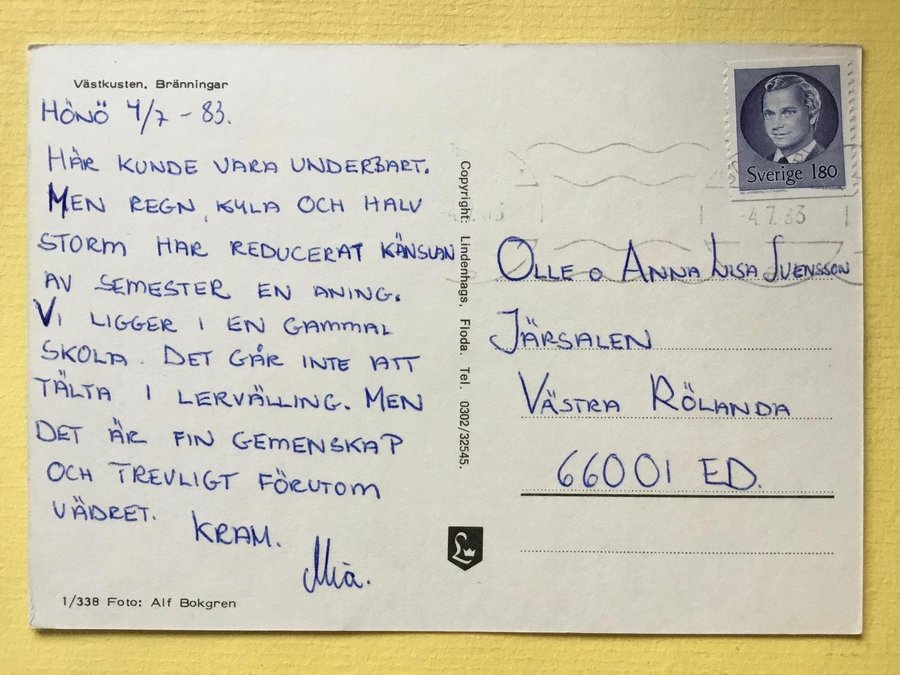 Västkusten, Bränningar
HÖNÖ 4/7 - 83.
HÄR KUNDE VARA UNDERBART.
MEN REGN, KYLA OCH HALV
STORM HAR REDUCERAT KÄNSLAN
AV SEMESTER EN ANING.
VI LIGGER I EN GAMMAL
SKOLA. DET GÅR INTE ATT
TÄLTA I LERVÄLLING. MEN
DET ÄR FIN GEMENSKAP
OCH TREVLIGT FÖRUTOM
VÄDRET.
KRAM.
Mia.
1/338 Foto: Alf Bokgren
Copyright: Lindenhags, Floda. Tel. 0302/32545.
Sverige 180
4.7.83
OLLE o ANNA LISA SVENSSON
JÄRSALEN
VÄSTRA RÖLANDA
66001 ED.
L